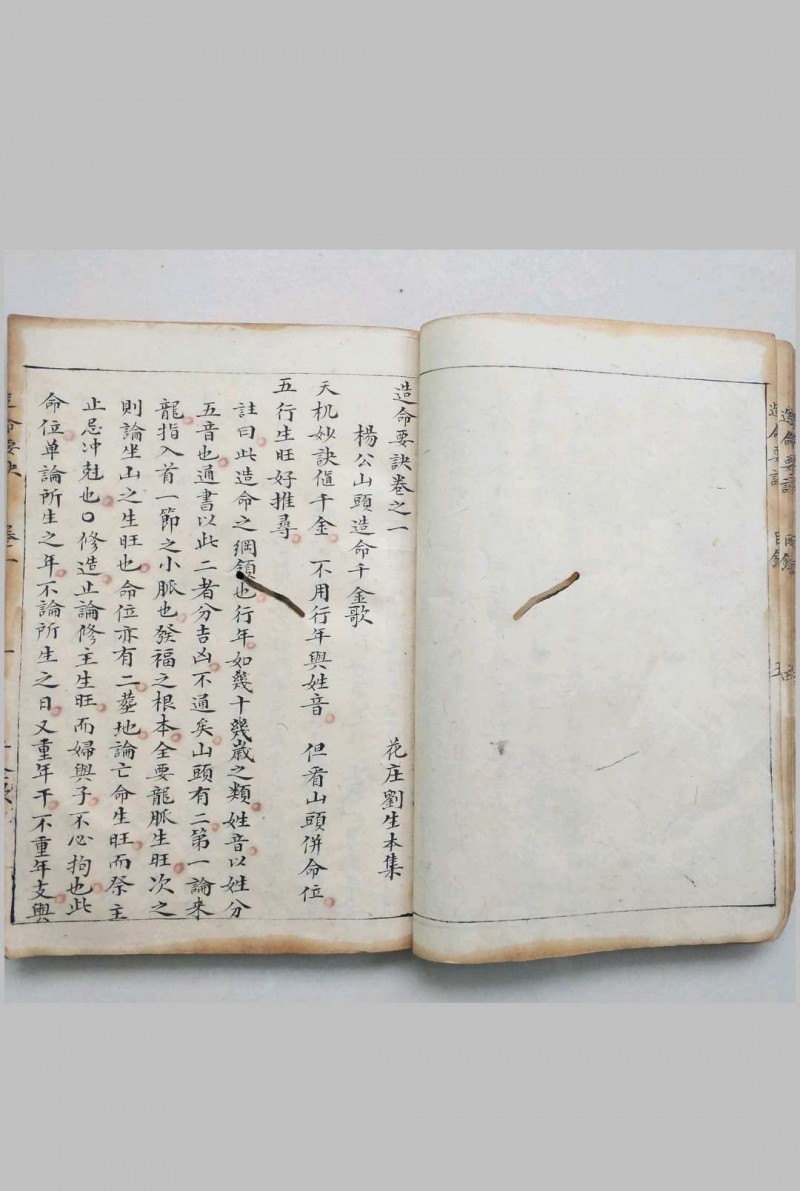 造命要訣卷之一
花庄劉生本集
楊公山頭造命千金歌
天机妙訣値千金 不用行年與姓音 但看山頭併命位
五行生旺好推尋
註曰此造命之綱領也行年如幾十幾歲之類姓音以姓分
五音也通書以此二者分吉凶不通矣山頭有二第一論来
龍指入首一節之小脈也發福之根本全要龍脈生旺次之
則論坐山之生旺也命位亦有二塟地論亡命生旺而祭主
止忌冲尅也〇修造止論修主生旺而婦與子不必拘也此
命位单論所生之年不論所生之日又重年干不重年支與